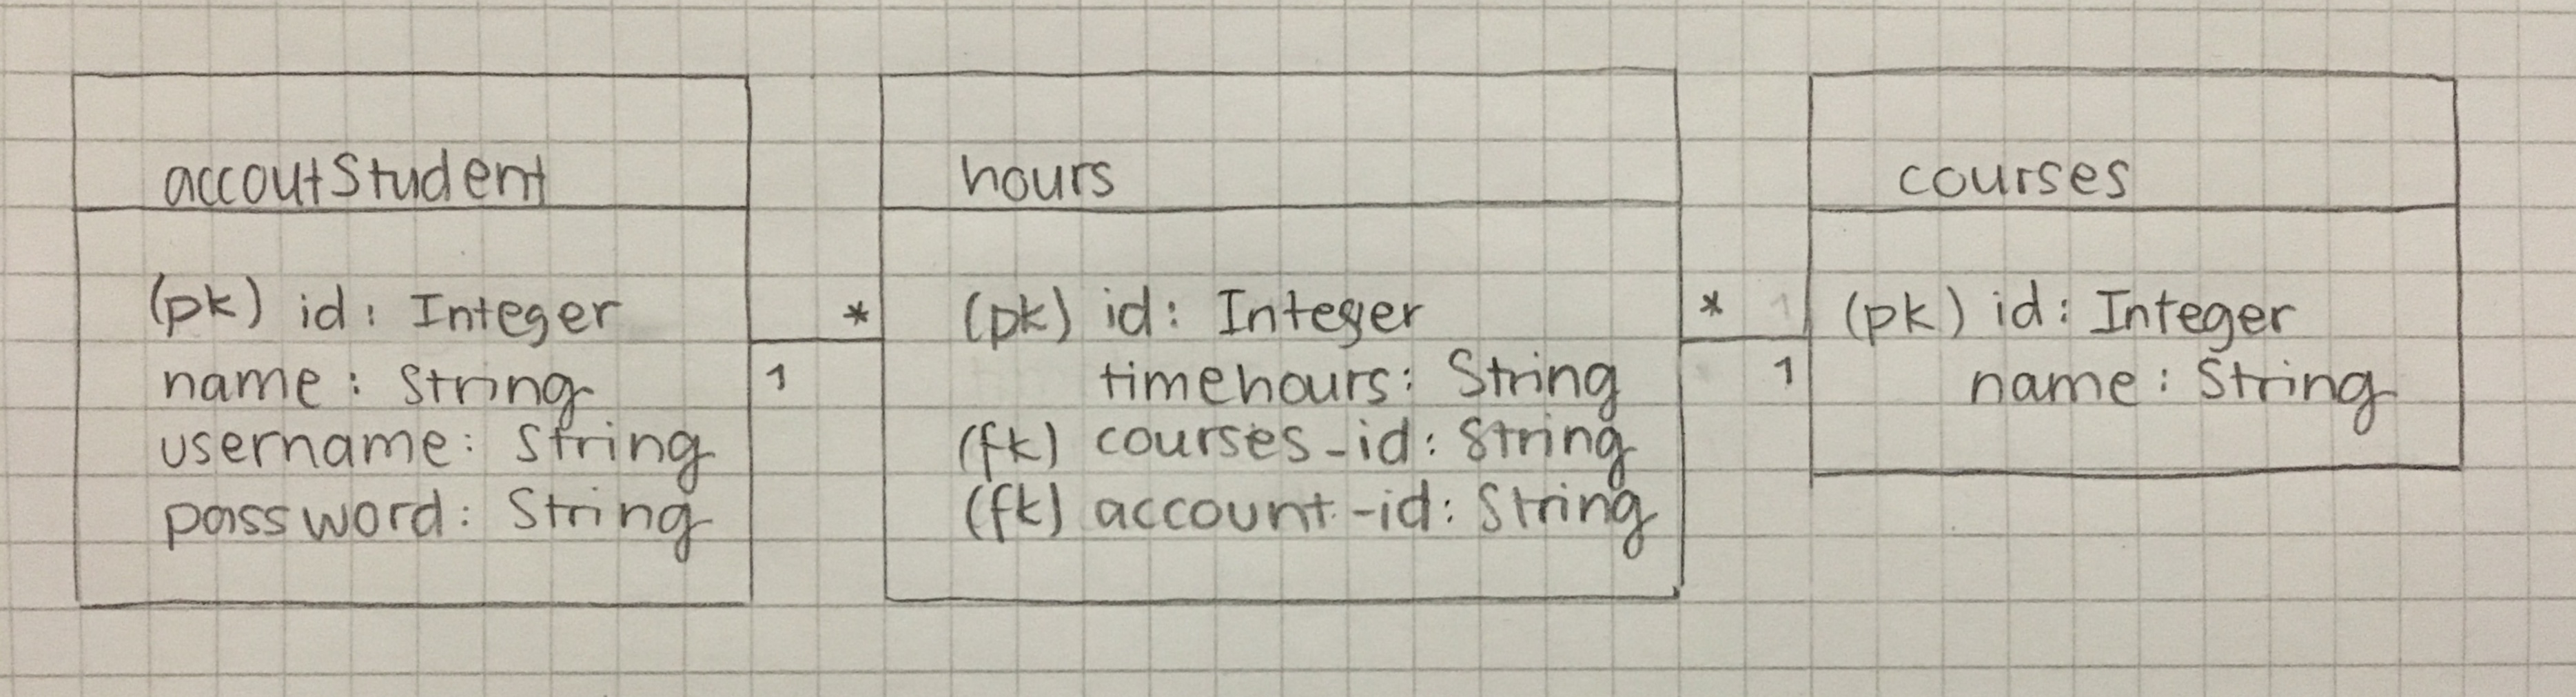 accoutStudent
(pk) id: Integer
name: String
username: String
password: String
1
*
hours
(pk) id: Integer
timehours: String
(fk) courses-id: String
(fk) account-id: String
*
1
1
courses
(pk) id: Integer
name: String